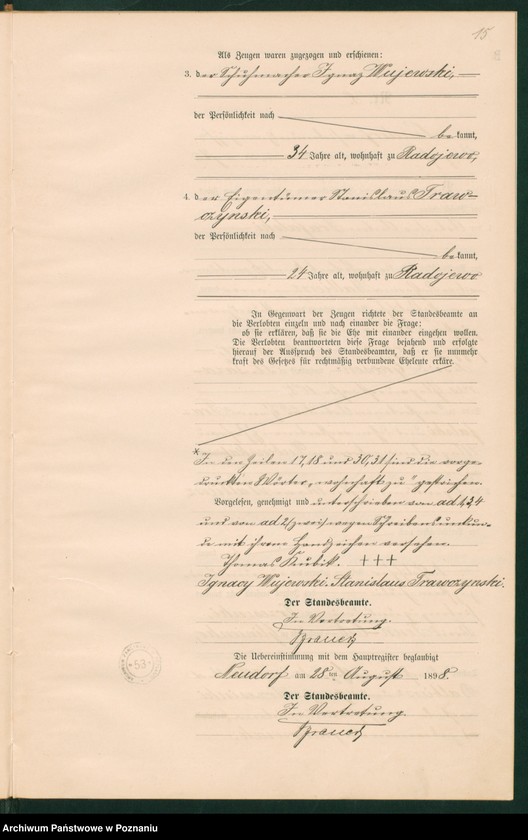 15
Als Zeugen waren zugezogen und erschienen:
3. der Schuhmacher Ignaz Wujewski,
der Persönlichkeit nach
bekannt,
34 Jahre alt, wohnhaft zu Radojewo;
4. der Eigentümer Stanislaus Traw-
czynski,
der Persönlichkeit nach
bekannt,
24 Jahre alt, wohnhaft zu Radojewo
In Gegenwart der Zeugen richtete der Standesbeamte an
die Verlobten einzeln und nach einander die Frage:
ob sie erklären, daß sie die Ehe mit einander eingehen wollen.
Die Verlobten beantworteten diese Frage bejahend und erfolgte
hierauf der Ausspruch des Standesbeamten, daß er sie nunmehr
kraft des Gesetzes für rechtmäßig verbundene Eheleute erkläre.
* In den Zeilen 17, 18 und 30, 31 sind die vorge-
druckten Wörter „wohnhaft zu" gestrichen.
Vorgelesen, genehmigt und unterschrieben von ad 1, 3, 4
und von ad 2 (zwei) wegen Schreibensunkun-
de mit ihrem Handzeichen versehen.
Thomas Kubik. +++
Ignacy Wujewski. Stanislaus Trawczynski.
Der Standesbeamte.
In Vertretung.
Die Uebereinstimmung mit dem Hauptregister beglaubigt
Neudorf am 28ten August 1898.
Der Standesbeamte.
In Vertretung.
53
Archiwum Państwowe w Poznaniu